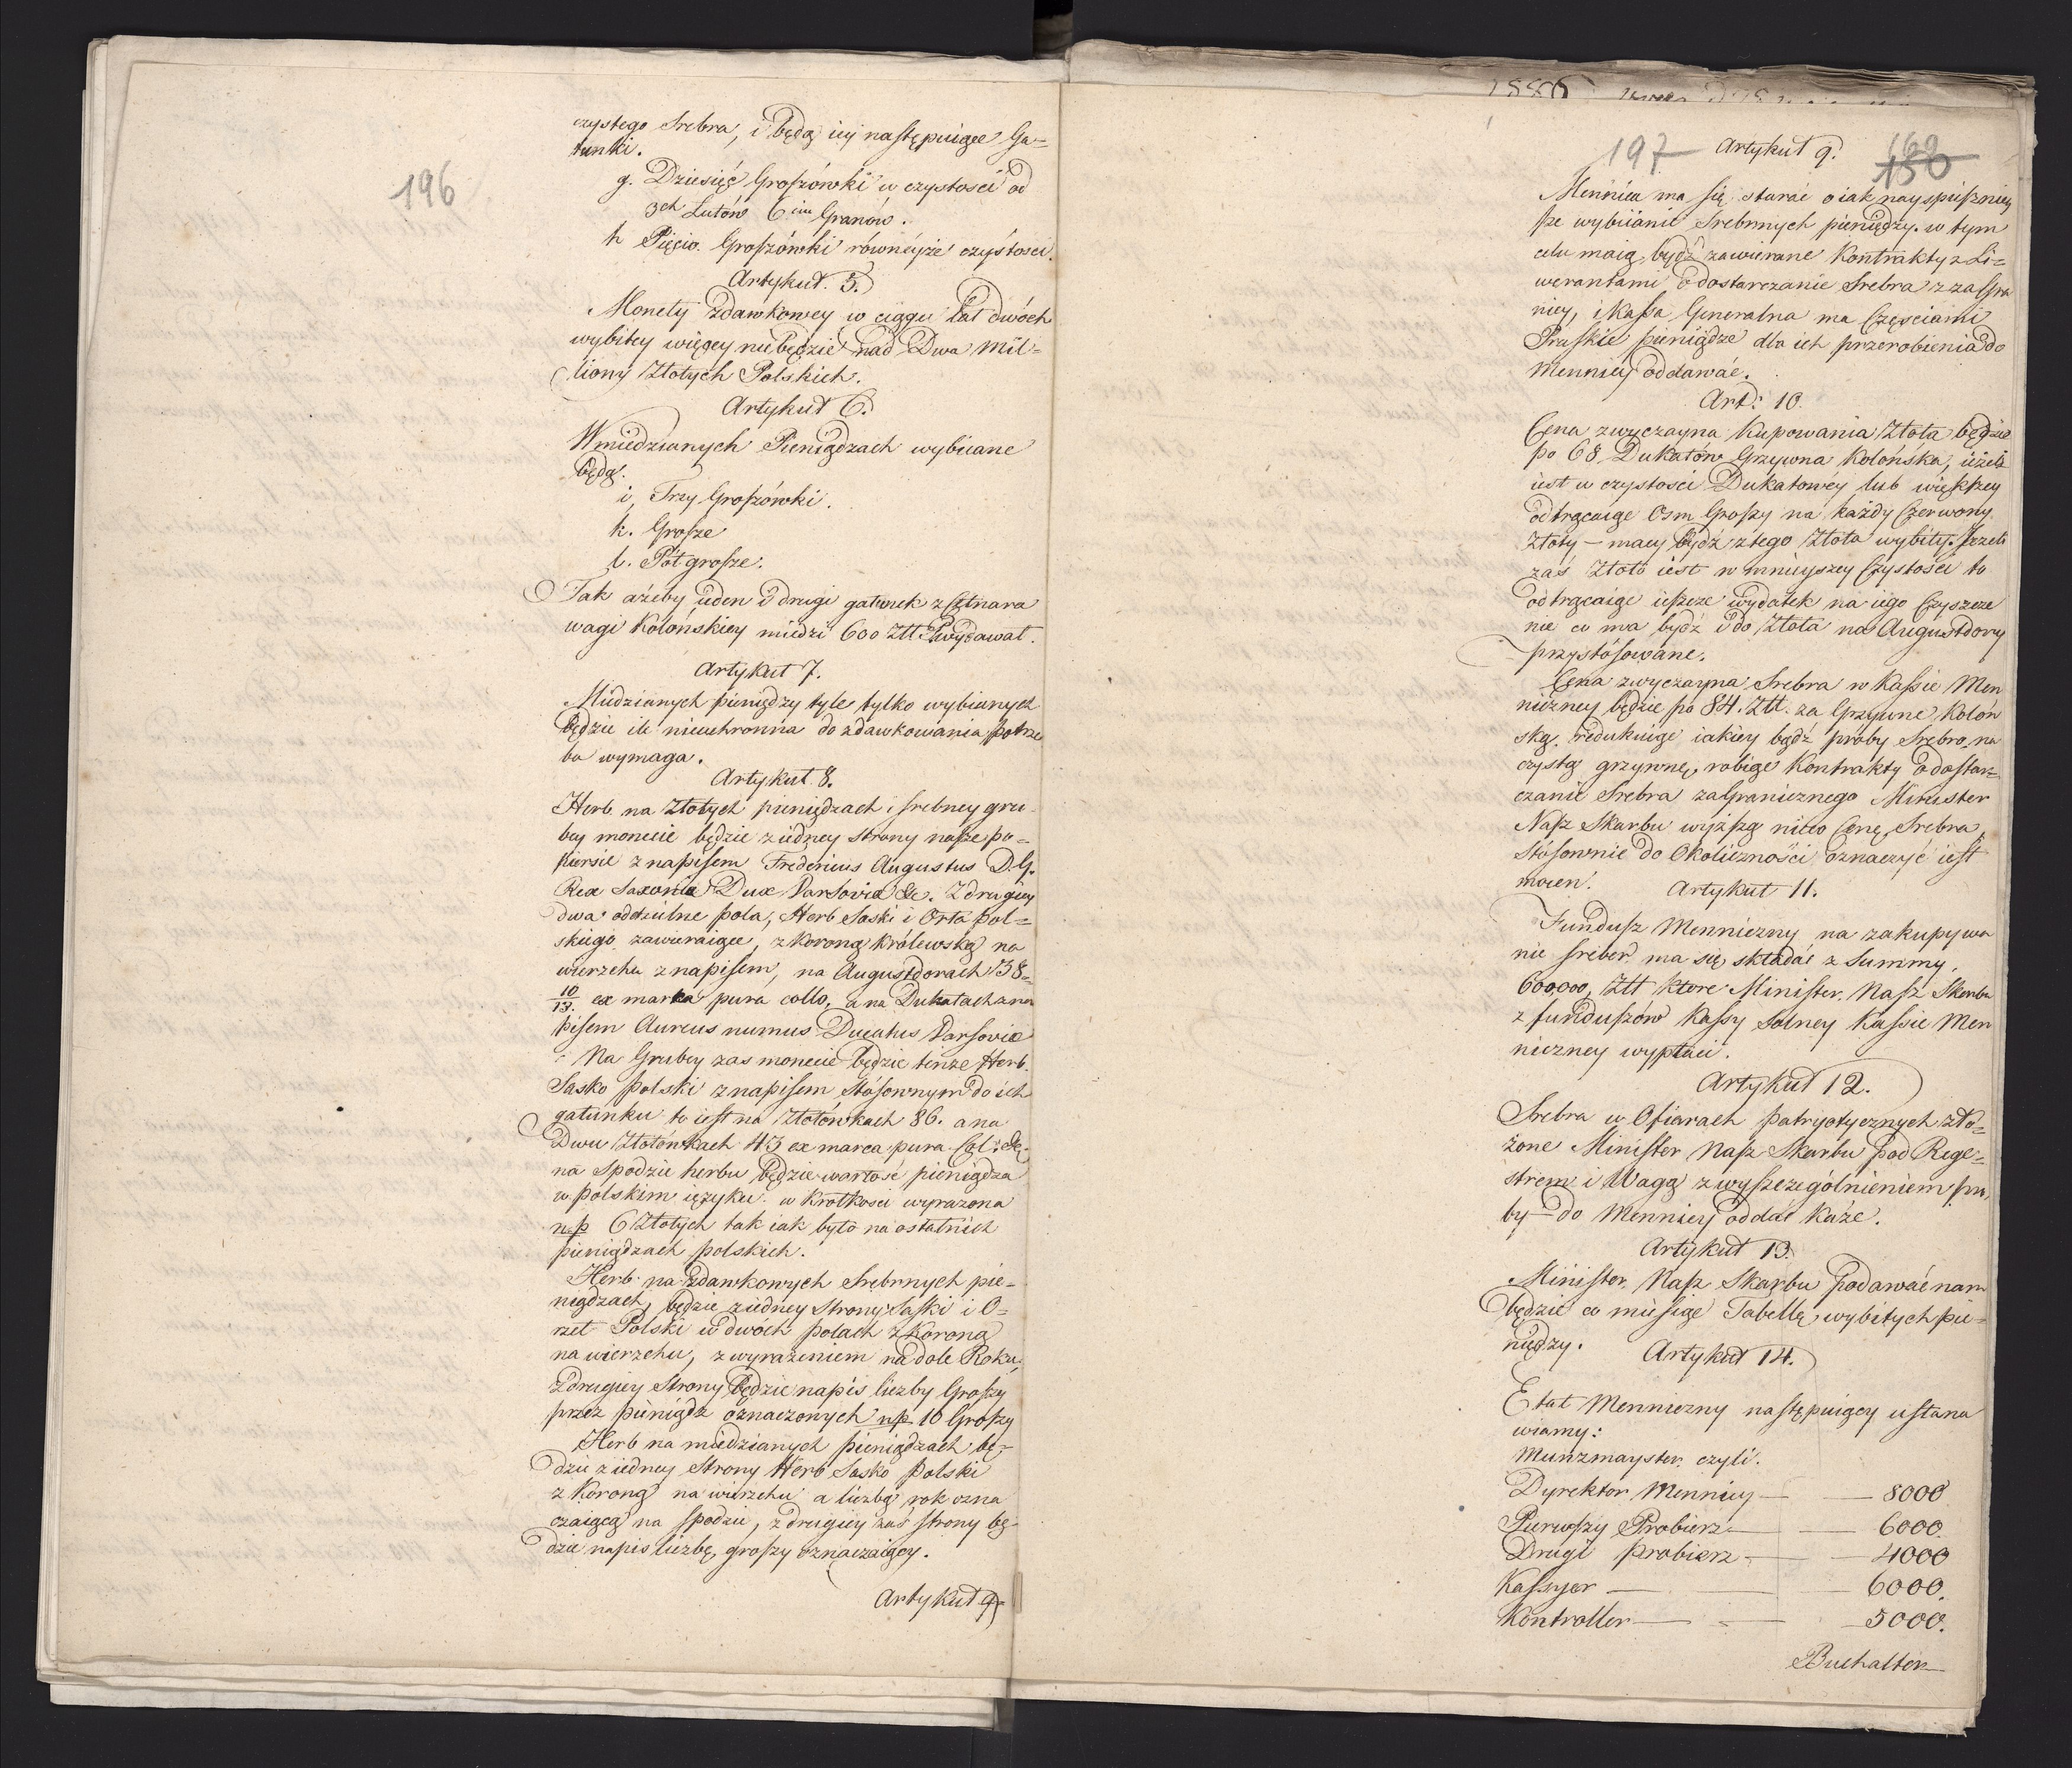 196
czystego Srebra, i będą iéy następuiące Ga=
tunki.
g. Dziesięć Groszówki w czystości od
3ch Lutów 6ciu Granów.
h Pięcio Groszówki równéyże czystości.
Artykuł. 5.
Monety Zdawkowey w ciągu lat dwóch
wybitey więcey nie będzie nad Dwa Mil=
liony Złotych Polskich.
Artykuł 6.
W miedzianych Pieniądzach wybiiane
będą.
i, Trzy Groszówki.
k. Grosze
l. Pół grosze.
Tak ażeby ieden i drugi gatunek z Cetnara
wagi Kolońskiey miedzi 600 Złł. wydawał.
Artykuł 7.
Miedzianych pieniędzy tyle tylko wybiianych
będzie ile nieuchronna do zdawkowania potrze
ba wymaga.
Artykuł 8.
Herb na złotych pieniądzach i srebney gru
bey monecie będzie z iedney strony nasze po=
piersie z napisem Fredericus Augustus D. G.
Rex Saxoniæ Dux Varsoviæ &c. Z drugiey
dwa oddzielne pola, Herb Saski i Orła pol=
skiego zawieraiące, z koroną królewską na
wierzchu z napisem, na Augustdorach 38=
10/13. ex marka pura collo, a na Dukatach z na
pisem Aureus numus Ducatus Varsoviæ
Na Grubey zas monecie będzie tenże Herb.
Sasko polski z napisem stósownym do ich
gatunku to iest na Złotówkach 86. a na
Dwu Złotówkach 43 ex marca pura Col: &c,
na spodzie herbu będzie wartość pieniądza
w polskim ięzyku w krótkości wyrażona
np 6 Złotych tak iak było na ostatnich
pieniądzach polskich.
Herb na zdawkowych Srebrnych pie=
niądzach, będzie z iedney Strony Saski i O=
rzeł Polski w dwóch polach z Koroną
na wierzchu, z wyrażeniem na dole Roku,
z drugiey Strony będzie napis liczby Groszy
przez pieniądz oznaczonych np 10 Groszy
Herb na miedzianych pieniądzach bę=
dzie z iedney Strony Herb Sasko polski
z Koroną na wierzchu a liczbą rok ozna
czaiącą na spodzie, z drugiey zaś strony bę=
dzie napis liczbę groszy oznaczaiący.
Artykuł 9
197 Artykuł 9. 150
Mennica ma się starać o iak nayspieszniey
sze wybiianie Srebrnych pieniędzy. w tym
celu maią bydź zawierane Kontrakty z Li=
werantami o dostarczanie Srebra z zagra
nicy, i Kassa Generalna ma Częściami
Pruskie pieniądze dla ich przerobienia do
Mennicy oddawać.
Art: 10.
Cena zwyczayna kupowania Złota będzie
po 68 Dukatów Grzywna Kolońska, ieżeli
iest w czystości Dukatowéy lub większey
odtrącaiąc Osm Groszy na każdy Czerwony
złoty – maiący bydź z tego Złota wybity. Jeżeli
zaś Złoto iest w mnieyszey Czystości to
odtrącaiąc ieszcze wydatek na iego Czyszcze
nie co ma bydź i do Złota na Augustdory
przystósowane.
Cena zwyczayna Srebra w Kassie Men
niczney będzie po 84. Złł. za Grzywnę Koloń
ską. redukuiąc iakiey bądź próby Srebro na
czystą grzywnę, robiąc Kontrakty o dostar=
czanie Srebra zagranicznego Minister
Nasz Skarbu wyższą nieco Cenę Srebra
stósownie do Okoliczności oznaczyć iest
mocen. Artykuł 11.
Fundusz Menniczny na zakupywa
nie sreber ma się składać z Summy.
600,000, Złł które Minister Nasz Skarbu
z funduszów Kassy Solney Kassie Men
niczney wypłaci.
Artykuł 12.
Srebra w Ofiarach patryotycznych zło=
żone Minister Nasz Skarbu pod Rege=
strem i Wagą z wyszczególnieniem pró,
by – do Mennicy oddać każe.
Artykuł 13.
Minister Nasz Skarbu podawać nam
będzie co miesiąc Tabellę wybitych pie=
niędzy. Artykuł 14.
Etat Menniczny następuiący ustana
wiamy:
Munzmayster czyli.
Dyrektor Mennicy — — 8000
Pierwszy Probierz — — 6000.
Drugi probierz — — 4000
Kassyer — — 6000.
Kontroller — — 5000.
Buchalter—